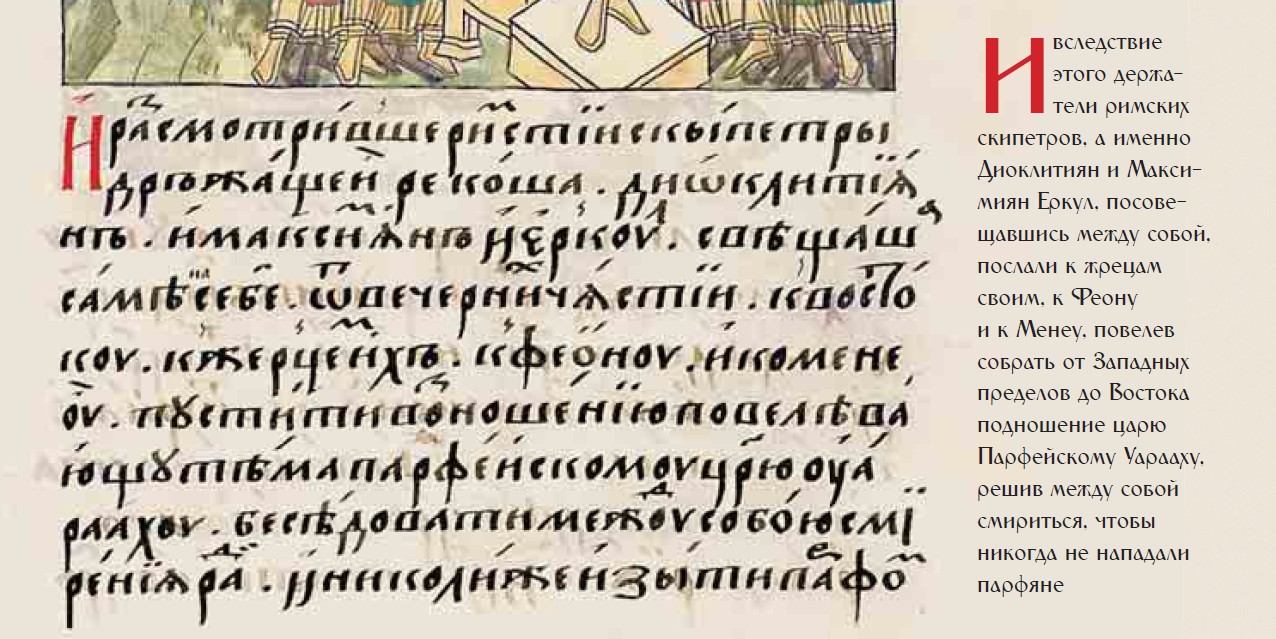 И расмотривше ристїи скыпетры
дръжащеи рекоша . дїѡклитїꙗ
нъ . и максиꙗнъ и еркоул . свѣщаш
самѣ себе . ѿ вечерни чястїи . к восто
коу . к жерцем ихъ . к феоноу . и ко мене
оу . пꙋстити вɜношенїю повелѣва
ющꙋ тѣма парфеискомоу црю оуа
раахоу . бесѣдовати межоу собою смї
ренїѧ рад . и николиже изыти парфо
И вследствие
этого держа-
тели римских
скипетров, а именно
Диоклитиян и Макси-
миян Еркул, посове-
щавшись между собой,
послали к жрецам
своим, к Феону
и к Менеу, повелев
собрать от Западных
пределов до Востока
подношение царю
Парфейскому Уарааху,
решив между собой
смириться, чтобы
никогда не нападали
парфяне